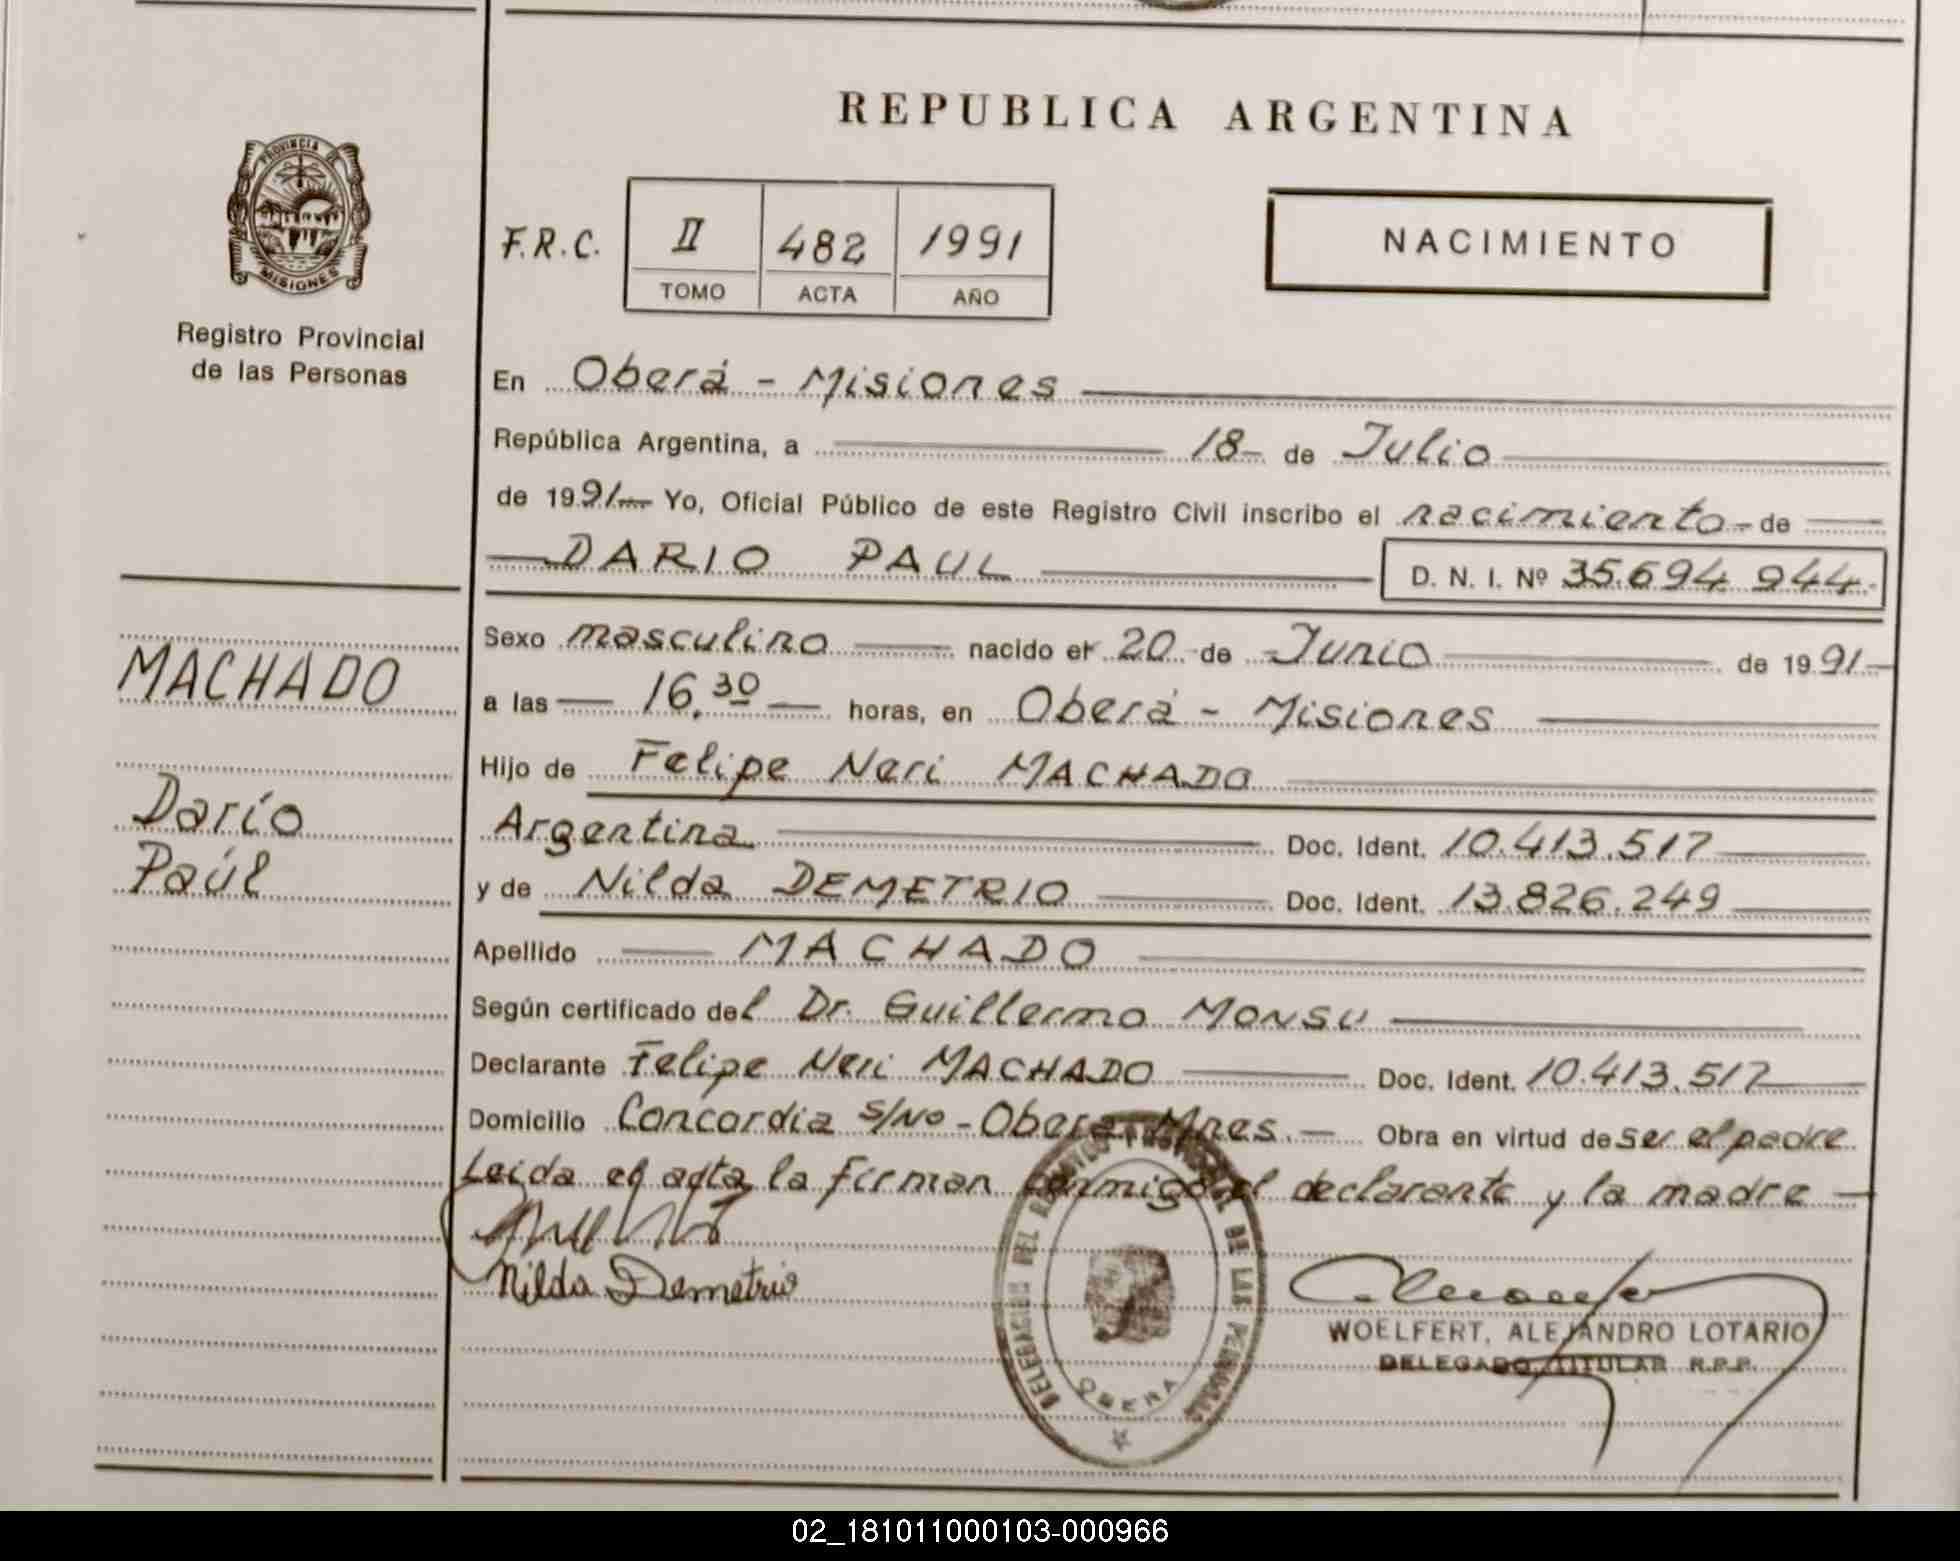 REPUBLICA ARGENTINA
PROVINCIA DE
MISIONES
Registro Provincial
de las Personas
F.R.C. II 482 1991
TOMO ACTA AÑO
NACIMIENTO
En Oberá - Misiones
República Argentina, a 18 de Julio
de 1991 Yo, Oficial Público de este Registro Civil inscribo el nacimiento de
DARIO PAUL D. N. I. Nº 35.694.944
Sexo masculino nacido el 20 de Junio de 1991
a las 16.30 horas, en Oberá - Misiones
Hijo de Felipe Neri MACHADO
Argentina Doc. Ident. 10.413.517
y de Nilda DEMETRIO Doc. Ident. 13.826.249
Apellido MACHADO
Según certificado del Dr. Guillermo MONSU
Declarante Felipe Neri MACHADO Doc. Ident. 10.413.517
Domicilio Concordia s/No - Oberá Mnes. Obra en virtud de ser el padre
Leida el acta la firman conmigo el declarante y la madre
Nilda Demetrio
MACHADO
Darío
Paúl
DELEGACION DEL REGISTRO PROVINCIAL DE LAS PERSONAS
OBERA
WOELFERT, ALEJANDRO LOTARIO
DELEGADO TITULAR R.P.P.
02_181011000103-000966